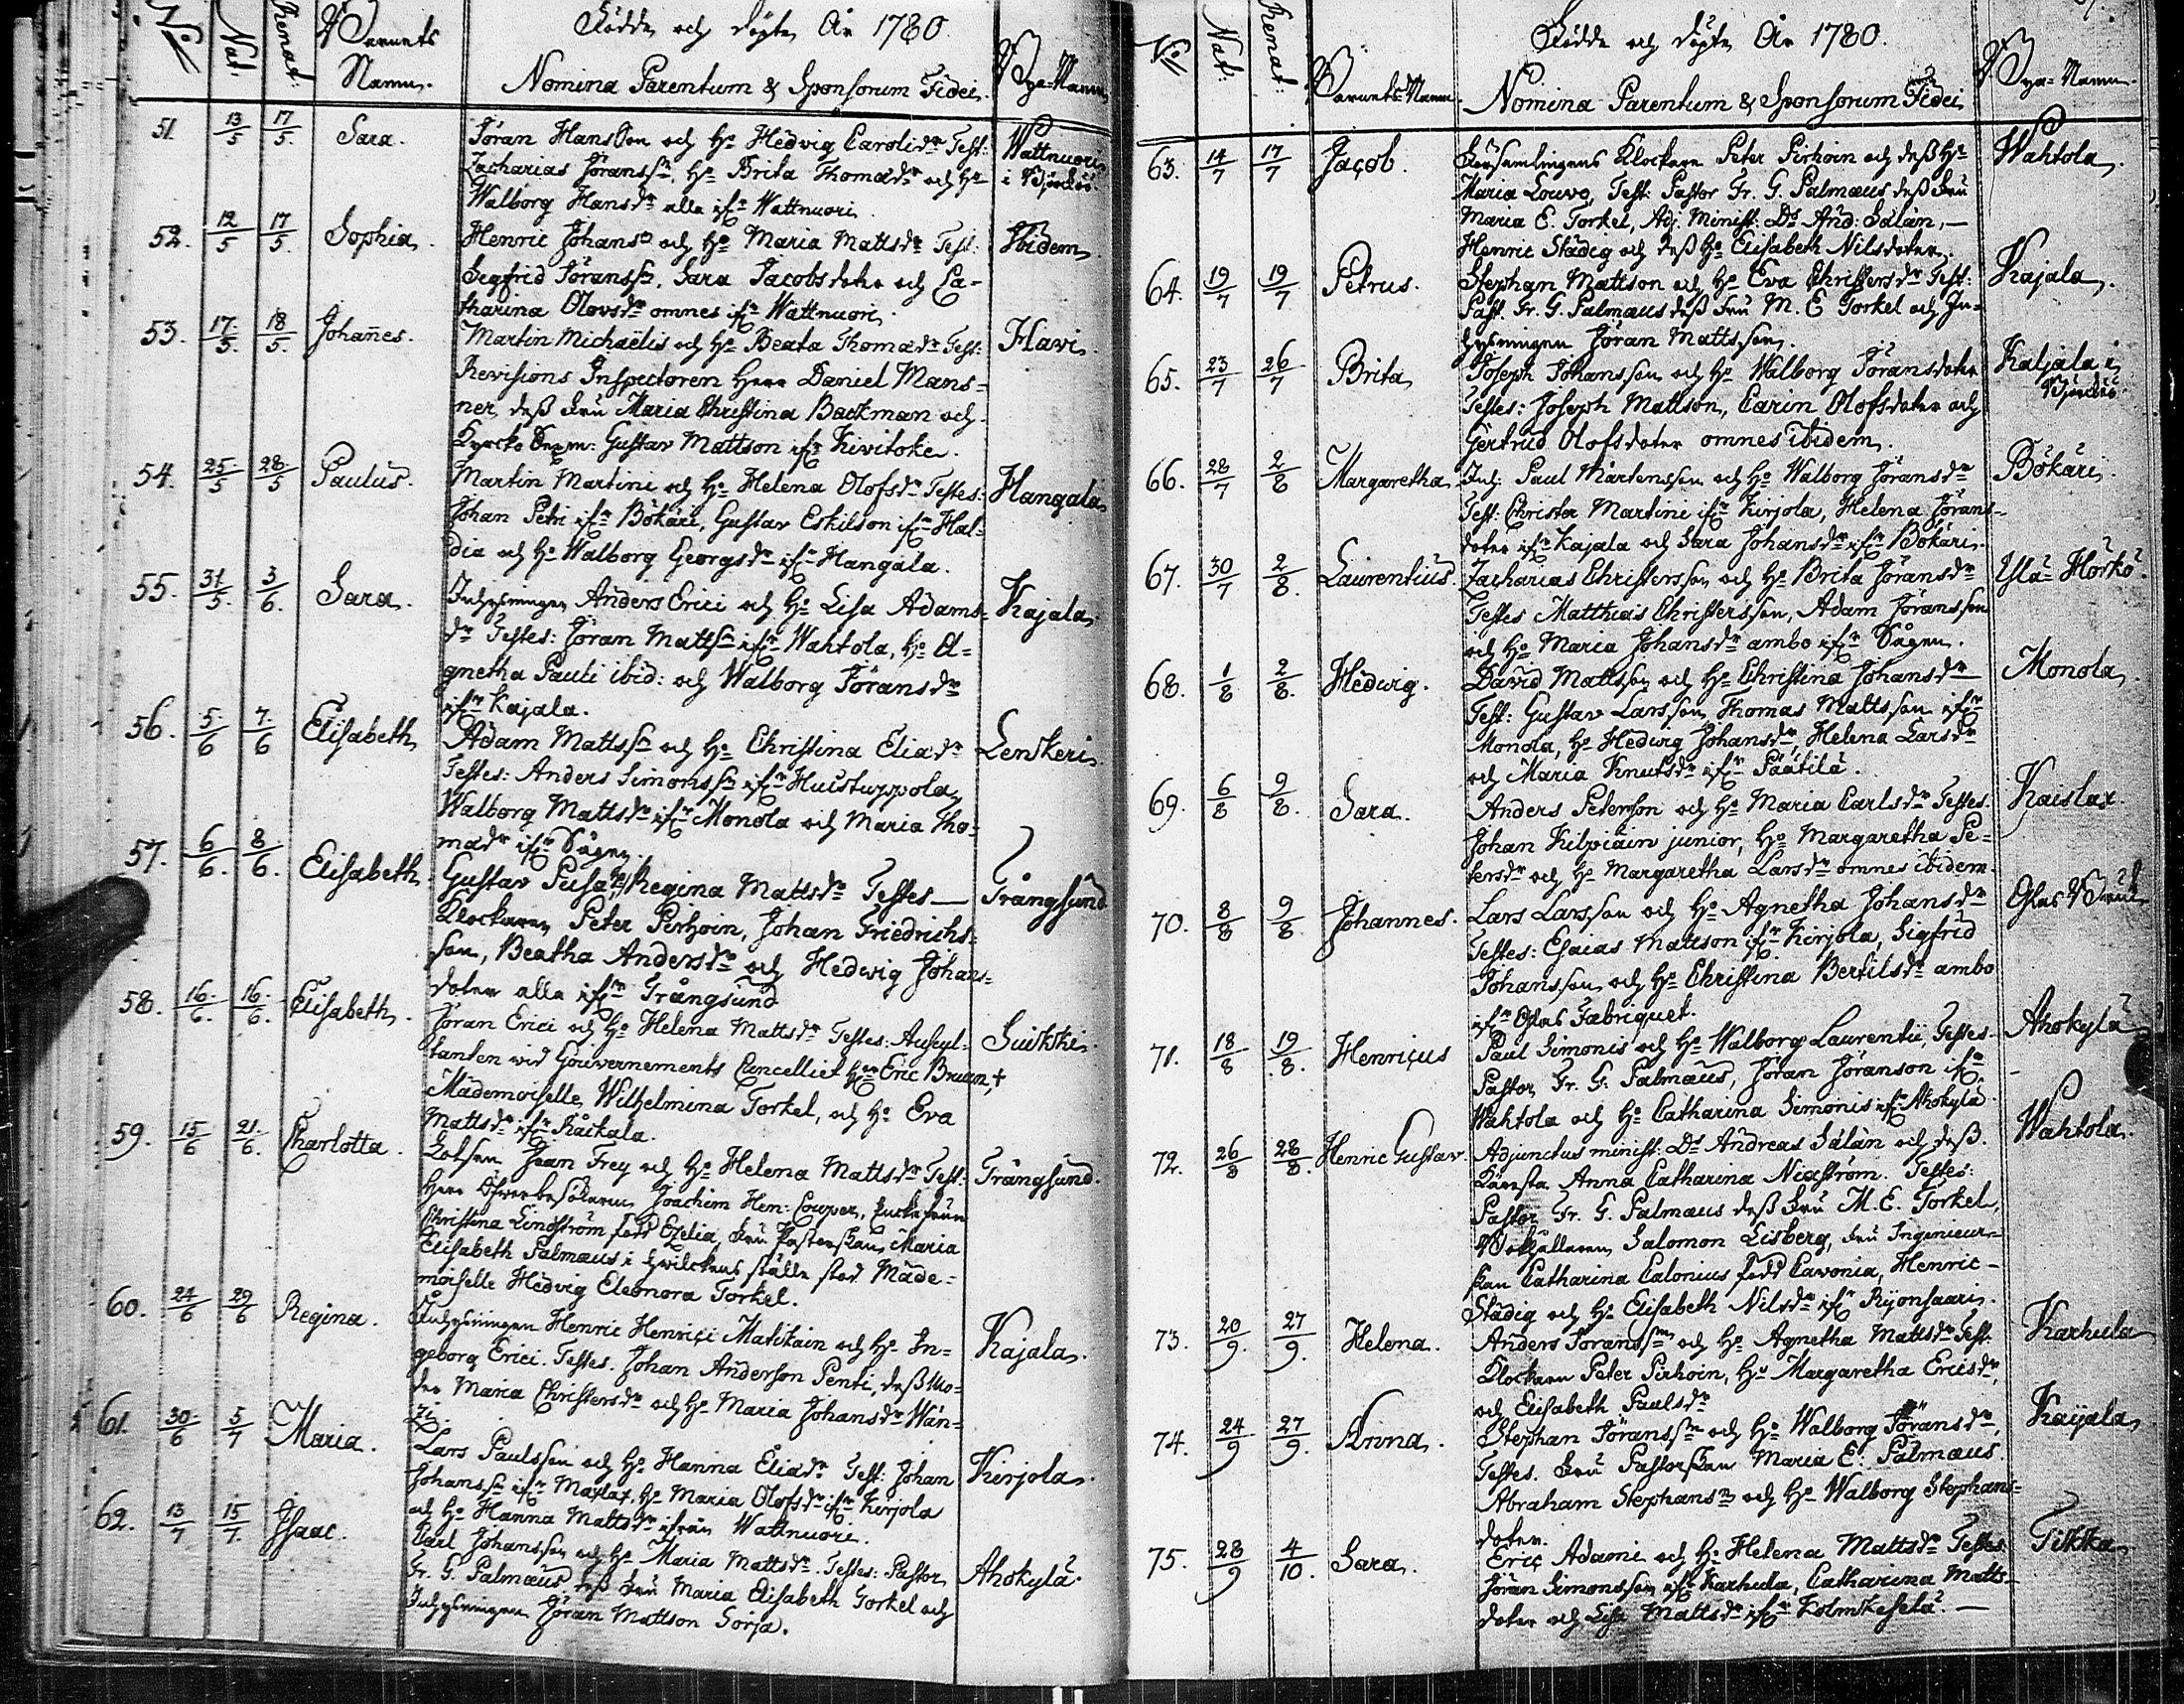 Födde och Döpte År 1780.
No Nat. Renat. Barnets Namn. Nomina Parentum & Sponsorum Fidei. Bya-Namn
51. 13/5 17/5. Sara. Jöran Hansson och Ho Hedvig Carolidr Test: Wattnuori
Zacharias Jöransn, Ho Brita Thomædr och Ho i Björckö.
Walborg Hansdr alla ifrn Wattnuori.
52. 12/5 17/5. Sophia. Henric Johansn och Ho Maria Mattsdr Test: Ibidem
Segfrid Jöranssn, Sara Jacobsdoter och Ca-
tharina Olovsdr omnes ifrn Wattnuori.
53. 17/5. 18/5. Johannes. Martin Michaëlis och Ho Beata Thomædr Test: Havi.
Revisions Inspectoren Herr Daniel Mans-
ner, dess Fru Maria Christina Backman och
Gustav Mattson ifrn Kivitoke.
54. 25/5 28/5 Paulus. Martin Martini och Ho Helena Olofsdr Testes: Hangala
Johan Petri ifrn Bökäri, Gustav Eskilson ifrn Hal-
dia och Ho Walborg Georgsdr ifrn Hangala.
55. 31/5. 3/6. Sara. Inhysningen Anders Erici och Ho Lisa Adams- Kajala.
dr Testes: Jöran Mattsn ifrn Wahtola, Ho A-
gnetha Pauli ibid: och Walborg Jöransdr
ifrn Kajala.
56. 5/6 7/6 Elisabeth. Adam Mattssn och Ho Christina Eliædr Lenskeri
Testes: Anders Simonssn ifrn Huistuppola,
Walborg Mattsdr ifrn Monola och Maria Tho-
mædr ifrn Sågen.
57. 6/6. 8/6. Elisabeth. Gustav Pusa, Regina Mattsdr Testes— Trångsund
Klockaren Peter Pirhoin, Johan Friedrichs-
son, Beatha Andersdr och Hedwig Johans-
doter alla ifrn Trångsund
58. 16/6. 16/6. Elisabeth. Jöran Erici och Ho Helena Mattsdr Testes: Auscul- Suikki.
tanten wid Gouvernements Cancelliet Hr Eric Bruun, +
Mademoiselle Wilhelmina Torkel, och Ho Eva
Mattsdr ifrn Räckala.
59. 15/6 21/6. Charlotta. Lotsen Joan Frey och Ho Helena Mattsdr Test: Trångsund.
Herr Joachim Hen: Couper,
Christina Lindström född Ezelia, Fru Pastorskan Maria
Elisabeth Palmæus i hvilckens ställe stod Made-
moiselle Hedvig Eleonora Torkel.
60. 24/6 29/6 Regina. Inhysningen Henric Henrici Matikain och Ho In- Kajala.
geborg Erici. Testes. Johan Anderson Penti, dess Mo-
der Maria Christersdr och Ho Maria Johansdr Wän-
zi.
61. 30/6 5/7 Maria. Lars Paulsson och Ho Hanna Eliædr Test: Johan Kirjola.
Johanssn ifrn Maxlax, Ho Maria Olofsdr ifrn Kirjola
och Ho Hanna Mattsdr ifrån Wattnuori.
62. 13/7 15/7. Isaac. Carl Johansson och Ho Maria Mattsdr. Testes: Pastor Ahokylä.
Fr. G. Palmæus, dess Fru Maria Elisabeth Torkel och
Inhysningen Jöran Mattson Sorja.
Födde och Döpte År 1780.
No Nat: Renat: Barnets Namn. Nomina Parentum & Sponsorum Fidei Bya-Namn.
63. 14/7 17/7 Jacob. Församlingens Klockare Peter Pirhoin och dess Ho Wahtola.
Maria Louvo, Test: Pastor Fr. G. Palmæus dess Fru
Maria E. Torkel, Adj. Minist: Ds And: Sálàn, —
Henric Städig och dess Ho Elisabeth Nilsdoter.
64. 19/7 19/7 Petrus. Stephan Mattson och Ho Eva Christersdr Test: Kajala.
Past. Fr. G. Palmæus dess Fru M. E Torkel och In-
hysningen Jöran Mattsson.
65. 23/7 26/7 Brita Joseph Johansson och Ho Walborg Jöransdoter Kaljala i
Testes: Joseph Mattson, Carin Olofsdoter och Björckö
Gertrud Olofsdoter omnes ibidem.
66. 28/7 2/8 Margaretha. Inh: Paul Mårtensson och Ho Walborg Jöransdr Bökäri
Test: Christer Martini ifrn Kirjola, Helena Jörans-
doter ifrn Kajala och Sara Johansdr ifrn Bökäri.
67. 30/7 2/8. Laurentius. Zacharias Christersson och Ho Brita Jöransdr Ylä-Hörkö.
Testes Matthias Christersson, Adam Jöransson
och Ho Maria Johansdr ambo ifrn Sågen.
68. 1/8 2/8. Hedwig. David Mattsson och Ho Christina Johansdr Monola.
Test: Gustav Larsson, Thomas Mattsson ifrn
Monola, Ho Hedwig Johansdr, Helena Larsdr
och Maria Knutsdr ifrn Päätilä.
69. 6/8 9/8. Sara. Anders Peterson och Ho Maria Carlsdr Testes. Kaislax.
Johan Kilpiäin junior, Ho Margaretha Pe-
tersdr och Ho Margaretha Larsdr omnes ibidem.
70. 8/8 9/8 Johannes. Lars Larsson och Ho Agnetha Johansdr Glas Bruk
Testes: Esaias Mattson ifrn Kirjola, Sigfrid
Johansson och Ho Christina Bertilsdr ambo
ifrn Glas Fabriquet.
71. 18/8 19/8. Henricus Paul Simonis och Ho Walborg Laurentii, Testes- Ahokylä
Pastor Fr. G. Palmæus, Jöran Jöranson ifrn
Wahtola och Ho Catharina Simonis ifrn Ahokylä.
72. 26/8 28/8. Henric Gustav. Adjunctus minist: Ds Andreas Sálàn och dess Wahtola.
Käresta Anna Catharina Nixström. Testes:
Pastor Fr. G. Palmæus dess Fru M. E. Torkel,
Bokhållaren Salomon Lisberg, Fru Ingenieur-
skan Catharina Calonius född Cavonia, Henric-
Städig och Ho Elisabeth Nilsdr ifrn Ryönsaari.
73. 20/9. 27/9. Helena. Anders Jöranssn och Ho Agnetha Mattsdr Test. Karhula
Klockaren Peter Pirhoin, Ho Margaretha Ericsdr,
och Elisabeth Paulsdr
74. 24/9 27/9. Anna. Stephan Jöranssn och Ho Walborg Jöransdr, Kajala
Testes. Fru Pastorskan Maria E: Palmæus
Abraham Stephansn och Ho Walborg Stephans-
doter.
75. 28/9 4/10. Sara. Eric Adami och Ho Helena Mattsdr Testes Tikka
Jöran Simonsson ifrn Karhula, Catharina Matts-
doter och Lisa Mattsdr ifrn Kolmikeselä. —